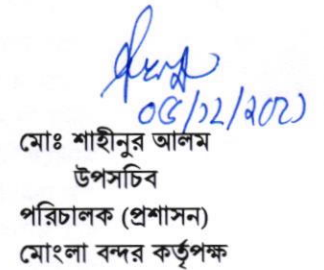 ০৫/১২/২০২১
মোঃ শাহীনুর আলম
উপসচিব
পরিচালক (প্রশাসন)
মোংলা বন্দর কর্তৃপক্ষ